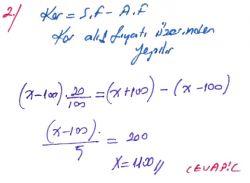 2/ Kar = S.F - A.F
Kar alış fiyatı üzerinden
yapılır
(x-100).20/100 = (x+100) - (x-100)
(x-100).
/5 = 200
x=1100//
CEVAP:C